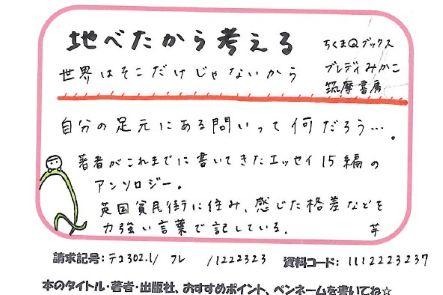 地べたから考える
ちくまQブックス
世界はそこだけじゃないから
ブレディみかこ
筑摩書房
自分の足元にある問いって何だろう…。
著者がこれまでに書いてきたエッセイ15編の
アンソロジー。
英国貧民街に住み、感じた格差などを
力強い言葉で記している。
請求記号:テコ302.1/ フレ /1222323 資料コード: 1112223237
本のタイトル・著者・出版社、おすすめポイント、ペンネームを書いてね☆